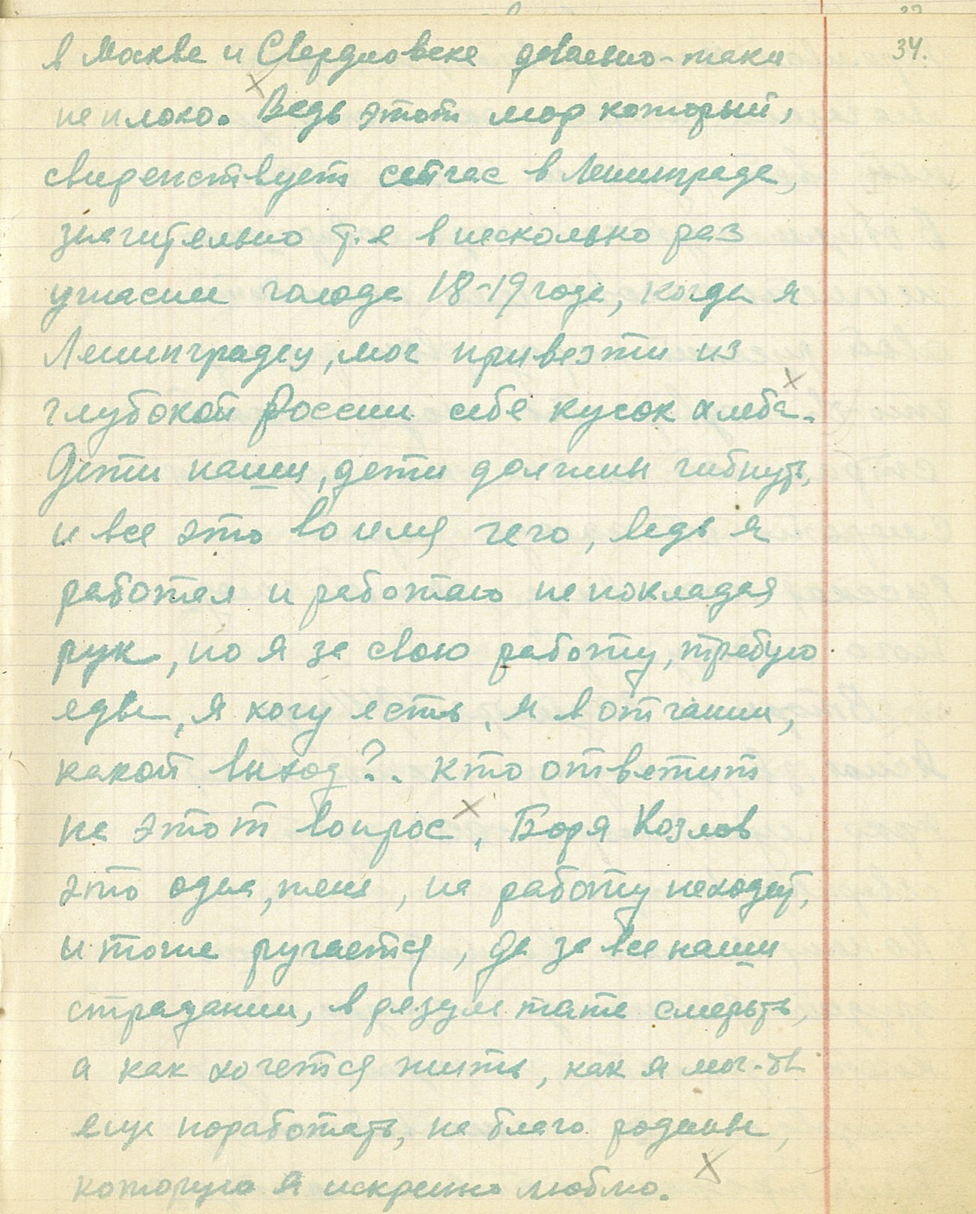 34.
в Москве и Свердловске довольно-таки
не плохо. Ведь этот мор который,
свирепствует сейчас в Ленинграде,
значительно т.е в несколько раз
ужасней голода 18-19 года, когда я
Ленинградец, мог привезти из
глубокой России себе кусок хлеба.
Дети наши, дети должны гибнуть,
и все это во имя чего, ведь я
работал и работаю не покладая
рук, но я за свою работу, требую
еды, я хочу есть, я в отчаяньи,
какой выход?.. кто ответит
на этот вопрос, Боря Козлов
это одна, на работу неходит,
и тоже ручается, да за все наши
страдания, в результате смерть,
а как хочется жить, как я мог-бы
еще поработать, на благо родины,
которую я искренно люблю.